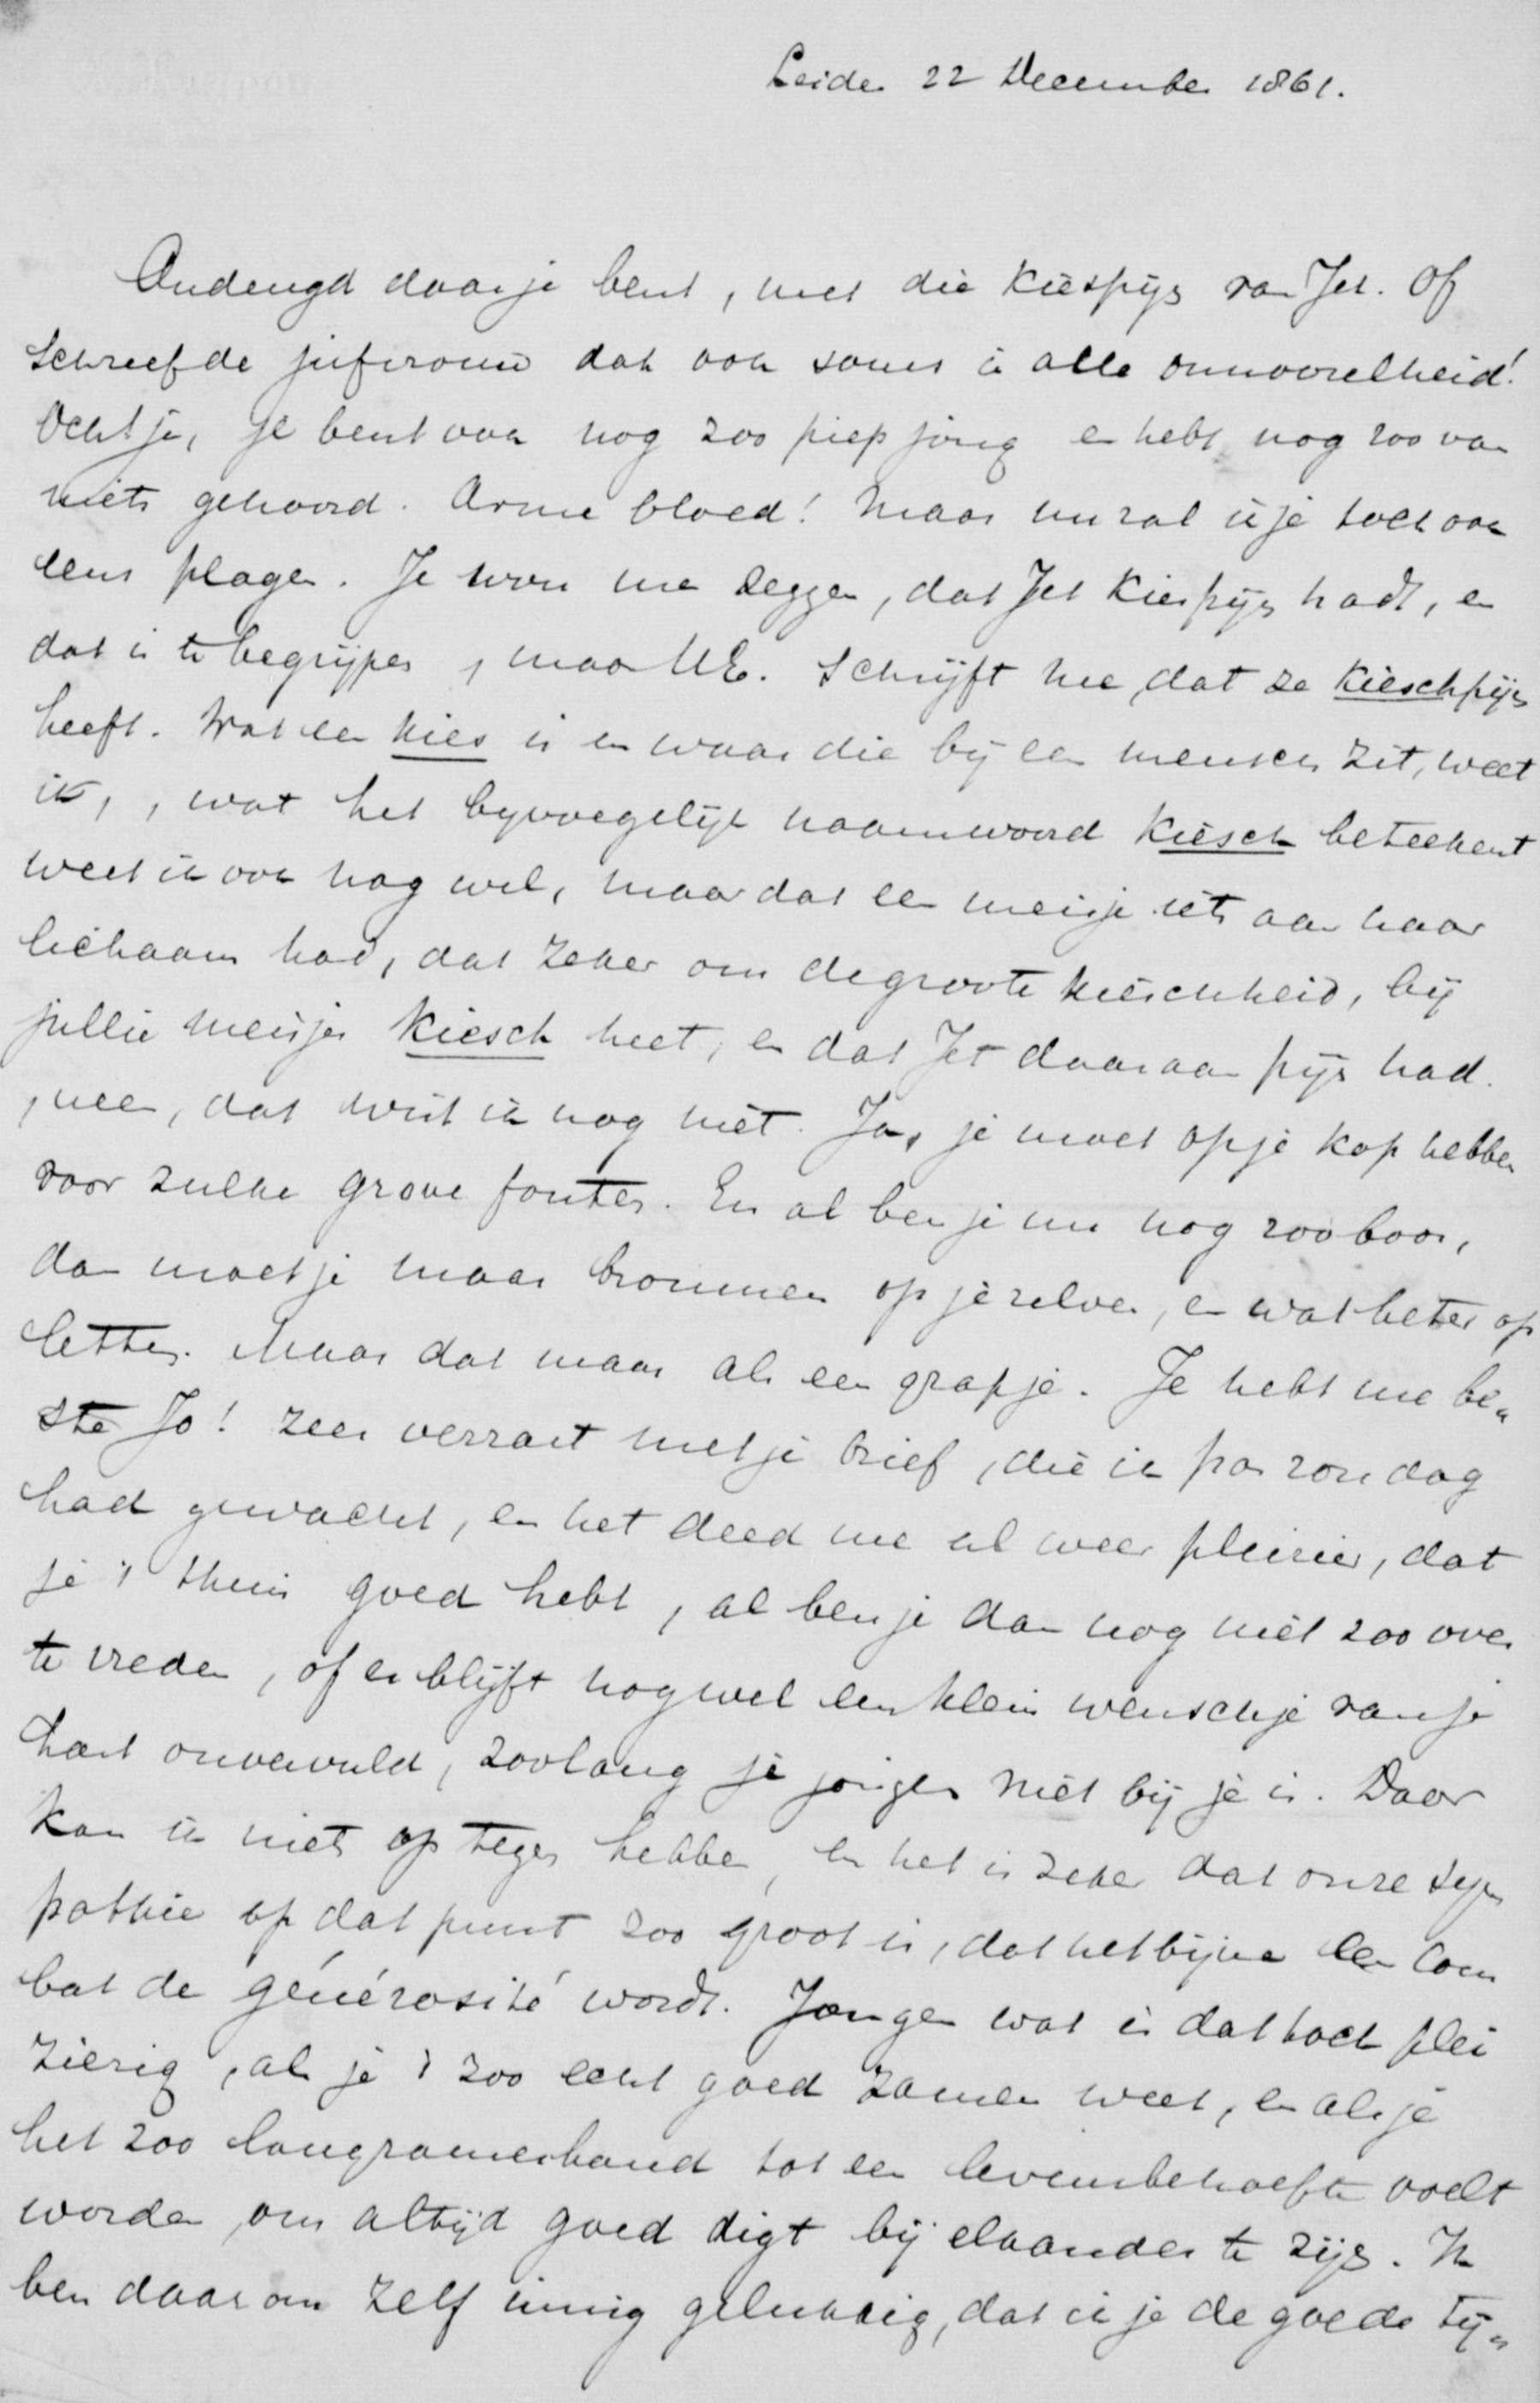 Leiden 22 December 1861.
Ondeugd daar je bent, met die kiespijn van Jet. Of
schreef de jufvrouw dat ook soms in alle onnoozelheid!
Och ja, je bent ook nog zoo piep jong en hebt nog zoo van
niets gehoord. Arme bloed! Maar nu zal ik je toch ook
eens plagen. Je wou me zeggen, dat Jet kiespijn hadt, en
dat is te begrijpen, maar UE. schrijft me, dat ze kieschpijn
heeft. Wat een kies is en waar die bij een mensch zit, weet
ik, , wat het bijvoegelijk naamwoord kiesch beteekent
weet ik ook nog wel, maar dat een meisje iets aan haar
lichaam had, dat zeker om de groote kieschheid, bij
jullie meisjes kiesch heet, en dat Jet daaraan pijn had.
, neen, dat wist ik nog niet. Ja, je moet op je kop hebben
voor zulke grove fouten. En al ben je nu nog zoo boos,
dan moet je maar brommen op je zelven, en wat beter op
letten. Maar dat maar als een grapje. Je hebt me be„
ste Jo! zeer verrast met je brief, die ik pas zondag
had gewacht, en het deed me al weer pleizier, dat
je 't thuis goed hebt, al ben je dan nog niet zoo over
te vreden, of er blijft nog wel een klein wenschje van je
hart onvervuld, zoolang je jongen niet bij je is. Daar
kan ik niets op tegen hebben, en het is zeker dat onze sym
pathie op dat punt zoo groot is, dat het bijna een com
bat de générosité wordt. Jongen wat is dat toch plei
zierig, als je 't zoo echt goed zamen weet, en als je
het zoo langzamerhand tot een levensbehoefte voelt
worden, om altijd goed digt bij elkander te zijn. Ik
ben daarom zelf innig gelukkig, dat ik je de goede tij„